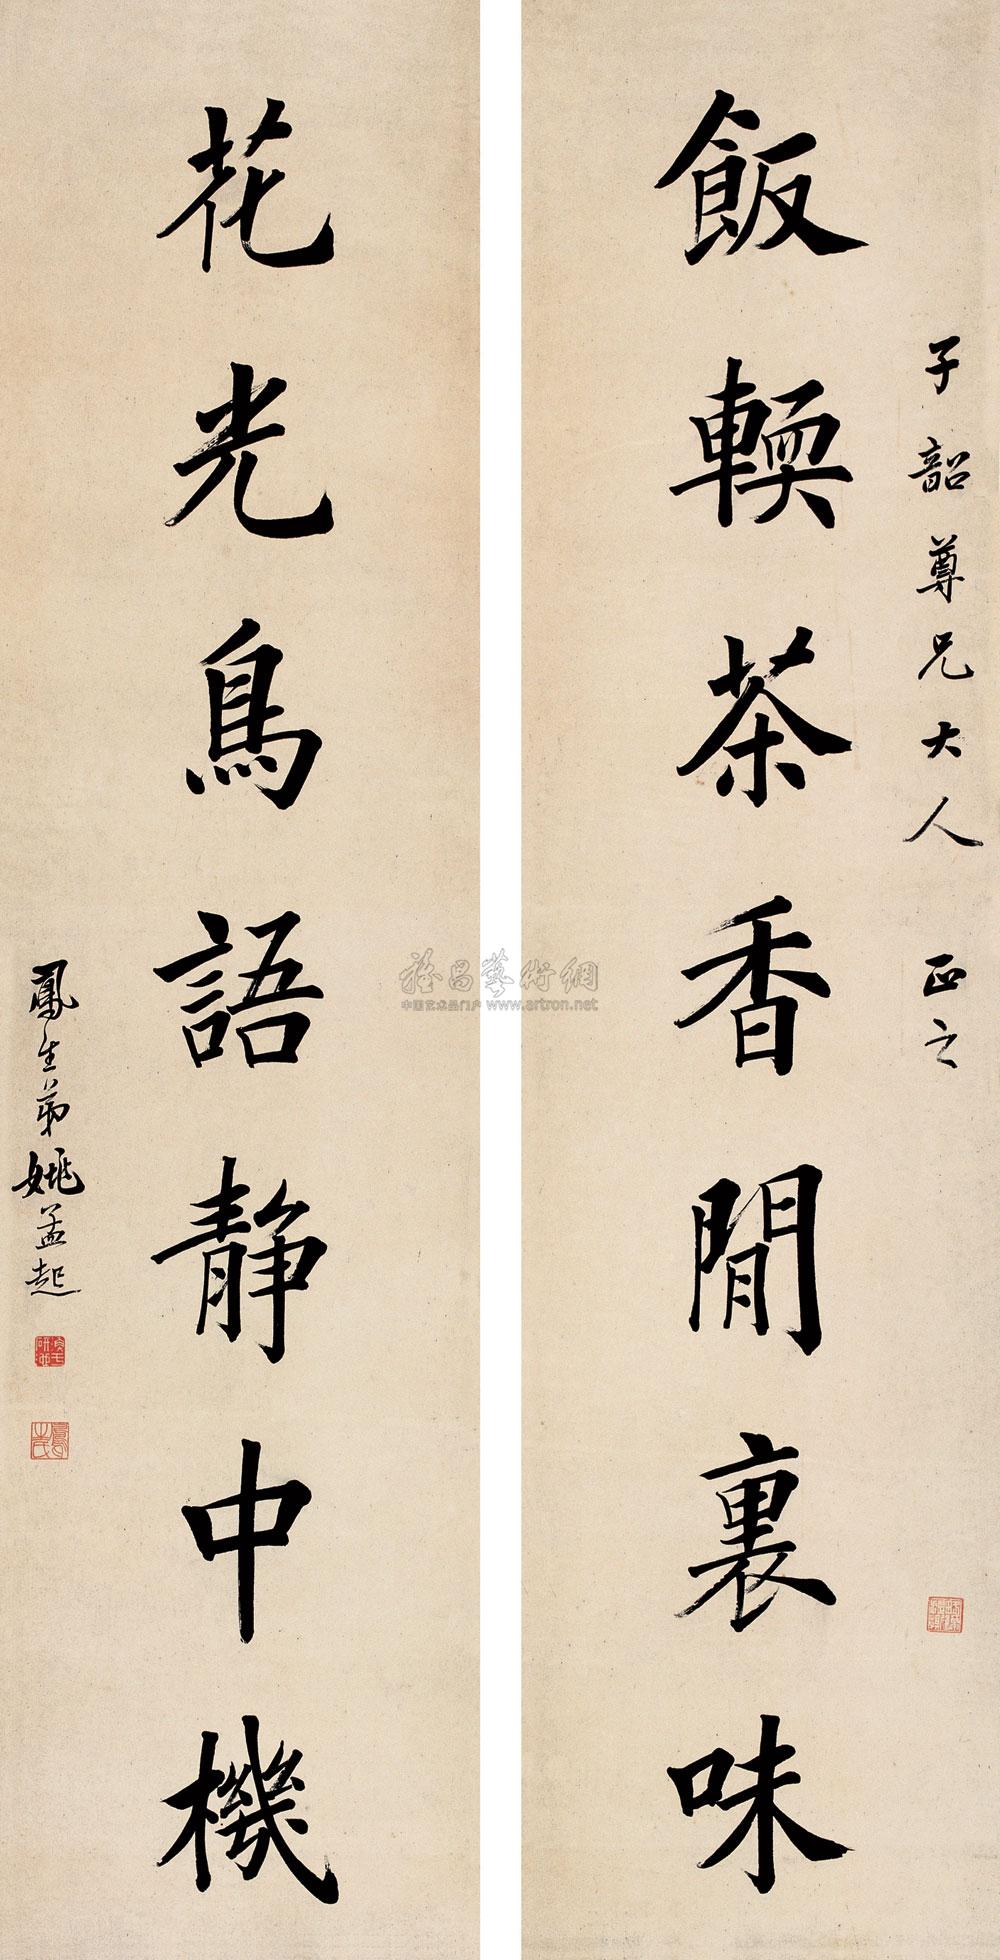 子韶尊兄大人 正之
飯輭茶香閒裏味
花光鳥語靜中機
鳳生弟姚孟起
雅昌藝術網
中国艺术品门户 www.artron.net